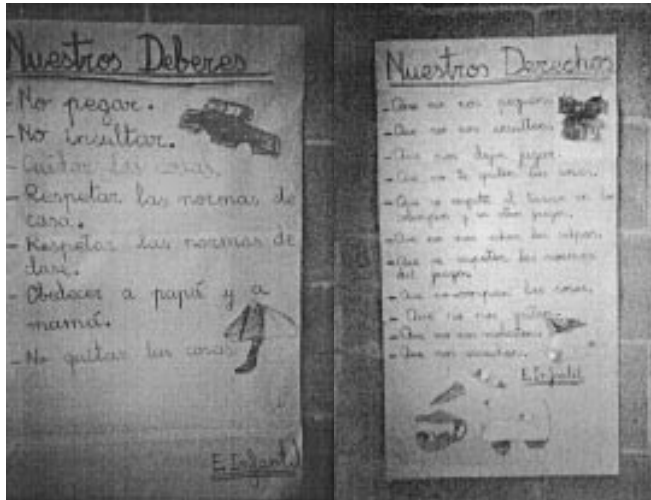 Nuestros Deberes
- No pegar.
- No insultar.
- Cuidar las cosas.
- Respetar las normas de
casa.
- Respetar las normas de
clase.
- Obedecer a papá y a
mamá.
- No quitar las cosas
E. Infantil
Nuestros Derechos
- Que no nos peguen
- Que no nos insulten
- Que nos dejen jugar.
- Que no te quiten las cosas.
- Que se respete el turno en los
columpios y en otros juegos.
- Que no nos echen las culpas.
- Que se respeten las normas
del juego.
- Que no rompan las cosas.
- Que no nos griten.
- Que no nos molesten.
- Que nos escuchen.
E. Infantil